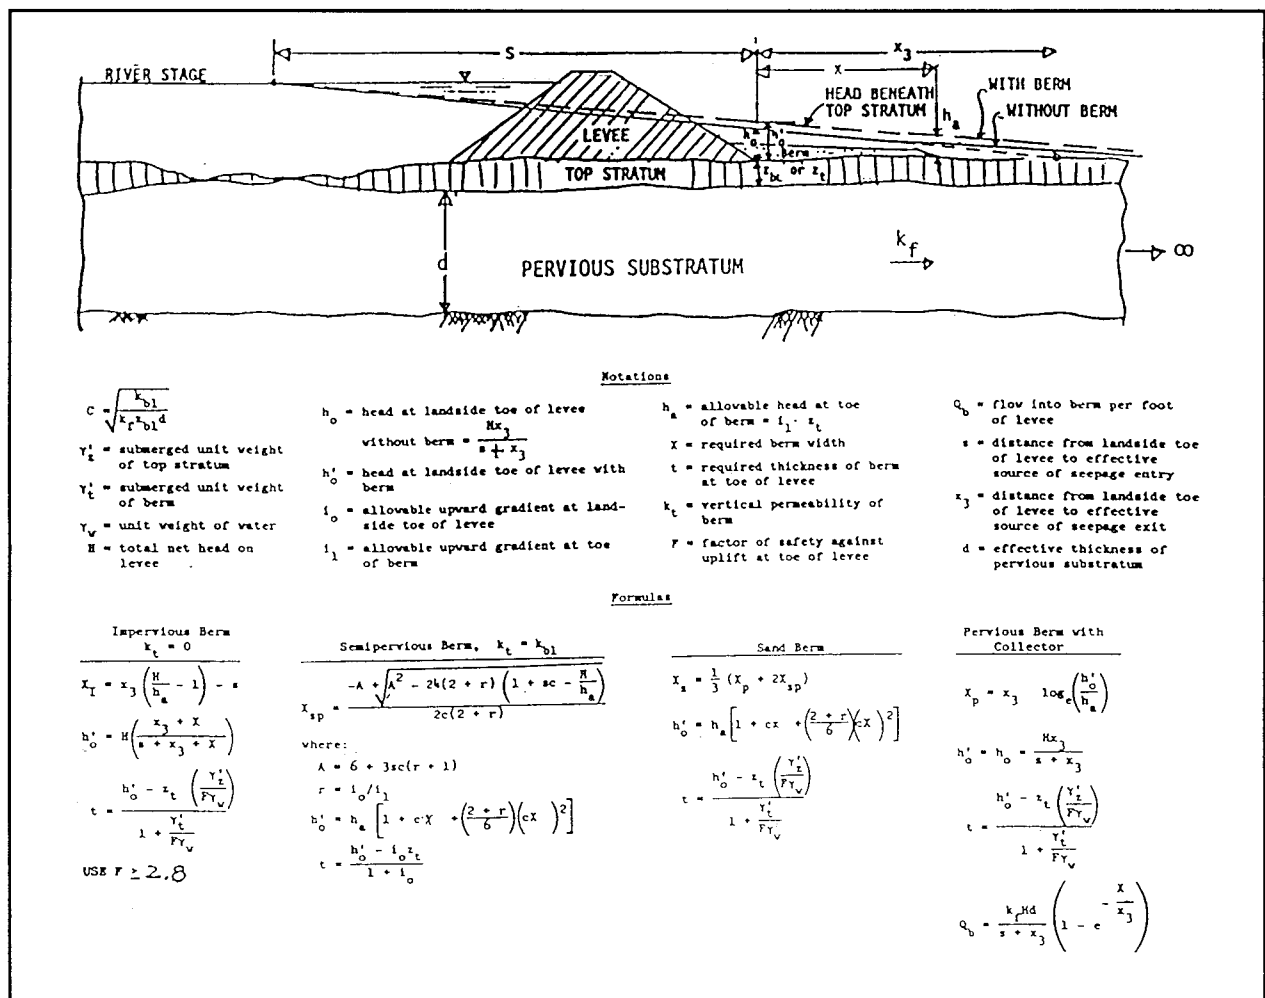 S
x₃
RIVER STAGE
X
HEAD BENEATH
TOP STRATUM
WITH BERM
WITHOUT BERM
hₐ
LEVEE
h₀" h₀'
Berm
TOP STRATUM
z_bL or z_t
d
k_f
∞
PERVIOUS SUBSTRATUM
Notations
C = √(k_bl / (k_f z_bl d))
γ'_z = submerged unit weight
of top stratum
γ'_t = submerged unit weight
of berm
γ_w = unit weight of water
H = total net head on
levee
h_o = head at landside toe of levee
without berm = Hx₃ / (s + x₃)
h'_o = head at landside toe of levee with
berm
i_o = allowable upward gradient at land-
side toe of levee
i_1 = allowable upward gradient at toe
of berm
h_a = allowable head at toe
of berm = i_1 · z_t
X = required berm width
t = required thickness of berm
at toe of levee
k_t = vertical permeability of
berm
F = factor of safety against
uplift at toe of levee
Q_b = flow into berm per foot
of levee
s = distance from landside toe
of levee to effective
source of seepage entry
x₃ = distance from landside toe
of levee to effective
source of seepage exit
d = effective thickness of
pervious substratum
Formulas
Impervious Berm
k_t = 0
X_I = x₃ (H/h_a - 1) - s
h'_o = H ((x₃ + X) / (s + x₃ + X))
t = (h'_o - z_t (γ'_z / Fγ_w)) / (1 + γ'_t / Fγ_w)
USE F ≥ 2.8
Semipervious Berm, k_t = k_bl
X_sp = (-A + √(A² - 24(2 + r) (1 + sc - H/h_a))) / 2c(2 + r)
where:
A = 6 + 3sc(r + 1)
r = i_o/i_1
h'_o = h_a [1 + cX + ((2 + r)/6) (cX)²]
t = (h'_o - i_o z_t) / (1 + i_o)
Sand Berm
X_s = 1/3 (X_p + 2X_sp)
h'_o = h_a [1 + cx + ((2 + r)/6) (cX)²]
t = (h'_o - z_t (γ'_z / Fγ_w)) / (1 + γ'_t / Fγ_w)
Pervious Berm with
Collector
X_p = x₃ log_e (h'_o / h_a)
h'_o = h_o = Hx₃ / (s + x₃)
t = (h'_o - z_t (γ'_z / Fγ_w)) / (1 + γ'_t / Fγ_w)
Q_b = (k_f Hd / (s + x₃)) (1 - e^(-X/x₃))